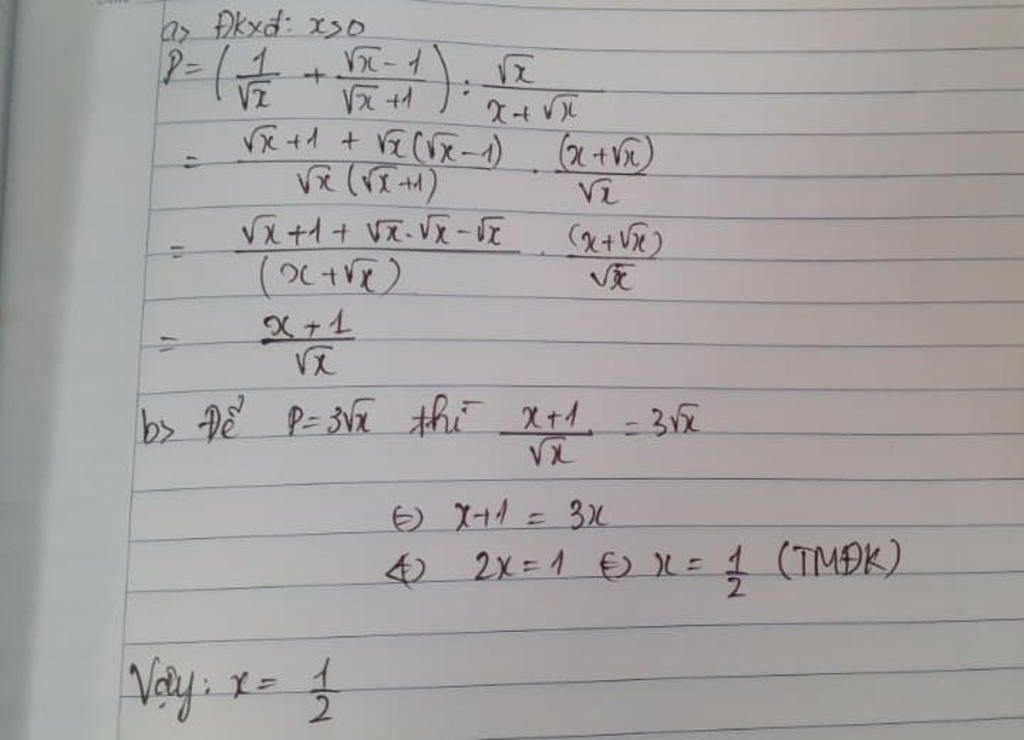 a> Đkxđ: x>0
P = (1/√x + (√x - 1)/(√x + 1)) : √x/(x + √x)
= (√x + 1 + √x(√x - 1))/(√x(√x + 1)) . (x + √x)/√x
= (√x + 1 + √x.√x - √x)/(x + √x) . (x + √x)/√x
= (x + 1)/√x
b> Để P = 3√x thì (x + 1)/√x = 3√x
⇔ x + 1 = 3x
⇔ 2x = 1 ⇔ x = 1/2 (TMĐK)
Vậy: x = 1/2